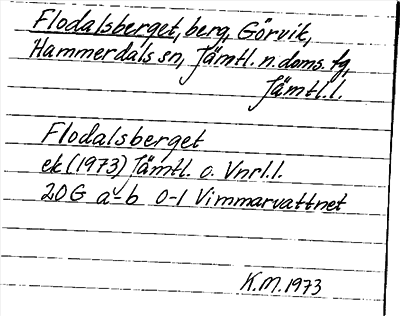 Flodalsberget, berg, Görvik,
Hammerdals sn, Jämtl. n. doms. fg,
Jämtl. l.
Flodalsberget
ek (1973) Jämtl. o. Vnrl. l.
20 G a-b 0-1 Vimmarvattnet
K.M. 1973